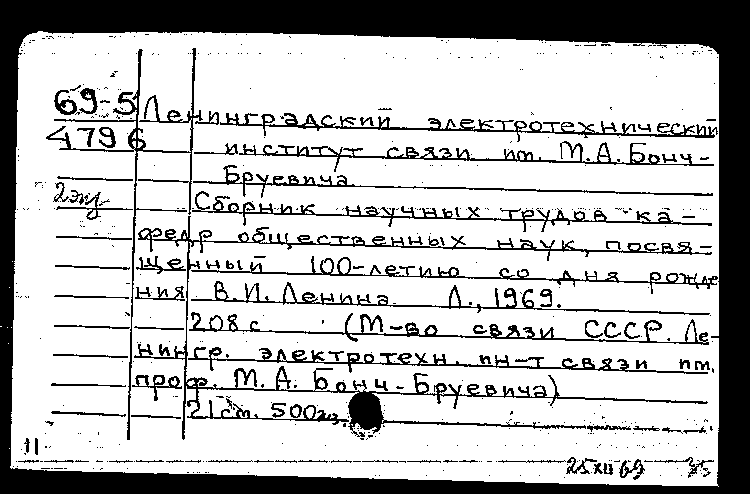 69-5 Ленинградский электротехнический
4796 институт связи им. М.А.Бонч-
Бруевича
2 экз Сборник научных трудов ка-
федр общественных наук, посвя-
щенный 100-летию со дня рожде
ния В.И.Ленина Л., 1969.
208 с (М-во связи СССР. Ле-
нингр. электротехн. ин-т связи им.
проф. М.А. Бонч-Бруевича)
21 см. 500 экз.
11
25 XII 69